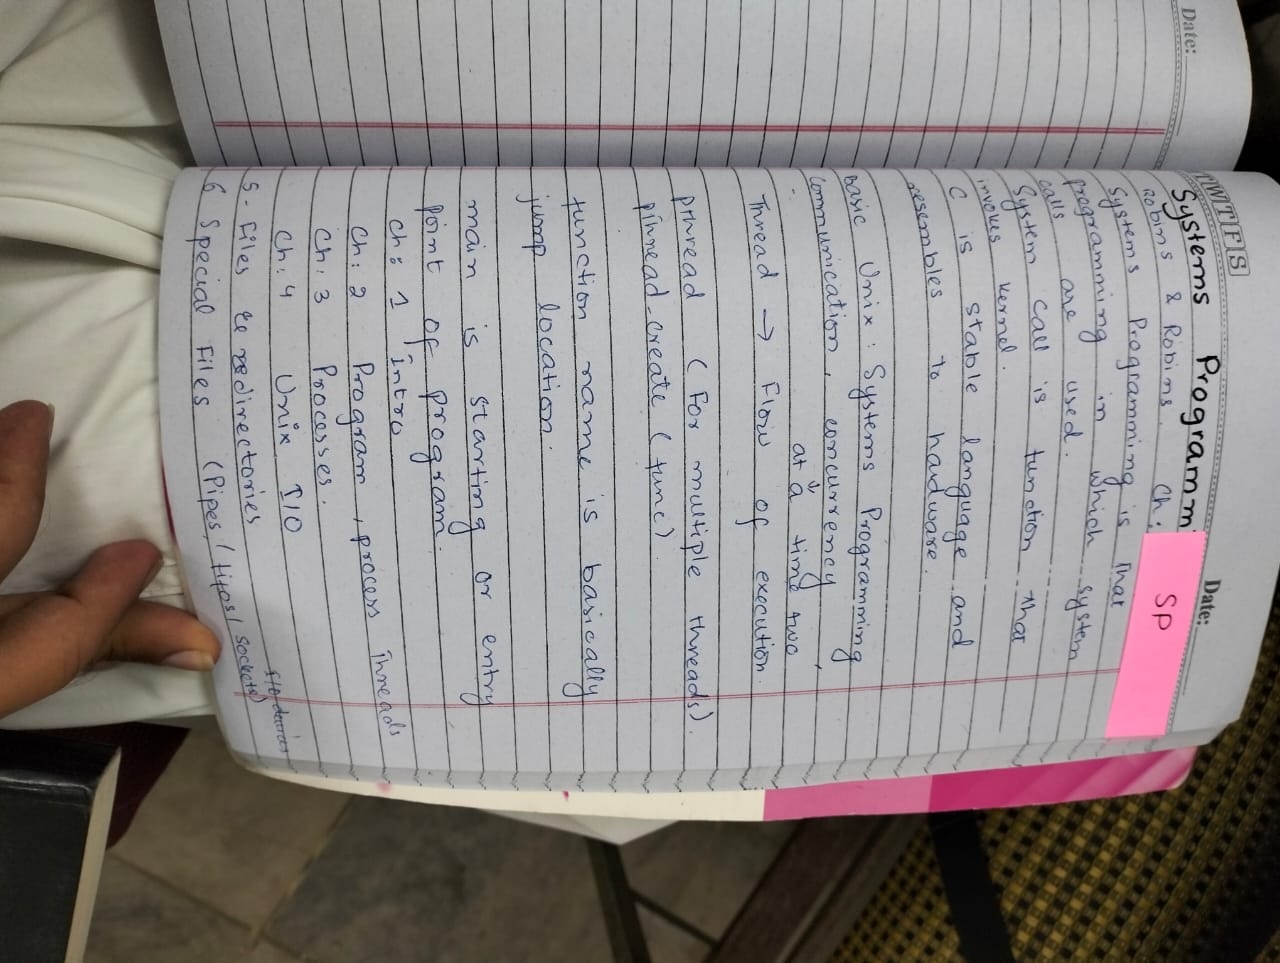 Date:
T W T F S
Date:
Systems Programm
SP
Robins & Robins. Ch:
Systems Programming is that
programming in which system
calls are used.
System call is function that
invokes kernel.
C is stable language and
resembles to hardware.
Basic Unix: Systems Programming
communication, concurrency,
at a time two
Thread → Flow of execution.
pthread (For multiple threads).
pthread_create (func)
function name is basically
jump location.
main is starting or entry
point of program.
Ch: 1 Intro
Ch: 2 Program, process Threads
Ch: 3 Processes.
Ch: 4 Unix I/O
I/O devices
5- Files & redirectories
6 Special Files (Pipes/fifos/sockets)